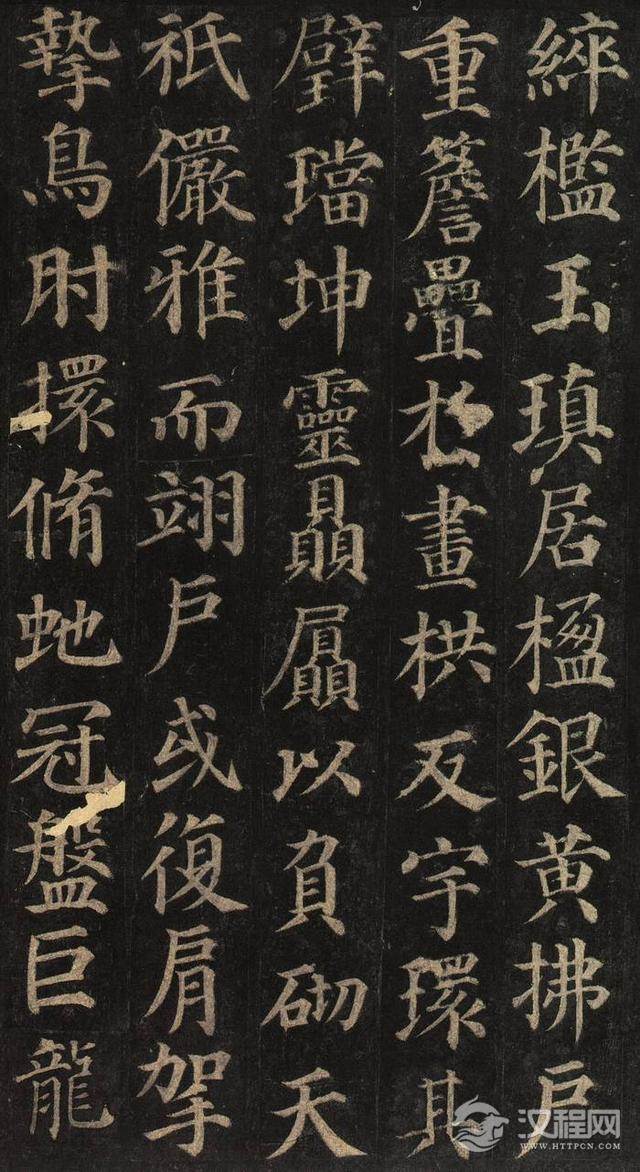 綷檻玉瑱居楹銀黃拂戶
重簷疊於畫栱反宇環其
璧璫坤靈贔屭以負砌天
祇儼雅而翊戶或復肩挐
摯鳥肘擐脩虵冠盤巨龍
汉程网
WWW.HTTPCN.COM